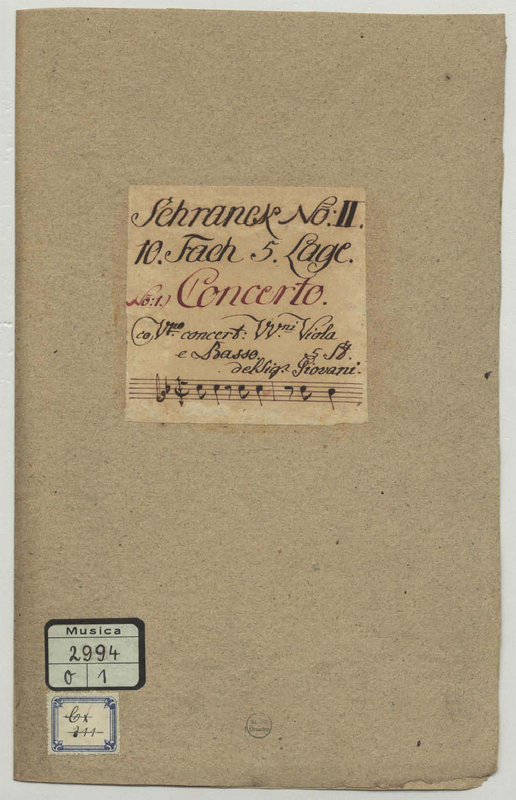 Schranck No: II.
10. Fach 5. Lage.
No: 1.) Concerto.
co Vno concert: VVni Viola
e Basso. 5 St.
del Sigr. Giovani.
Musica
2994
O 1
Cx